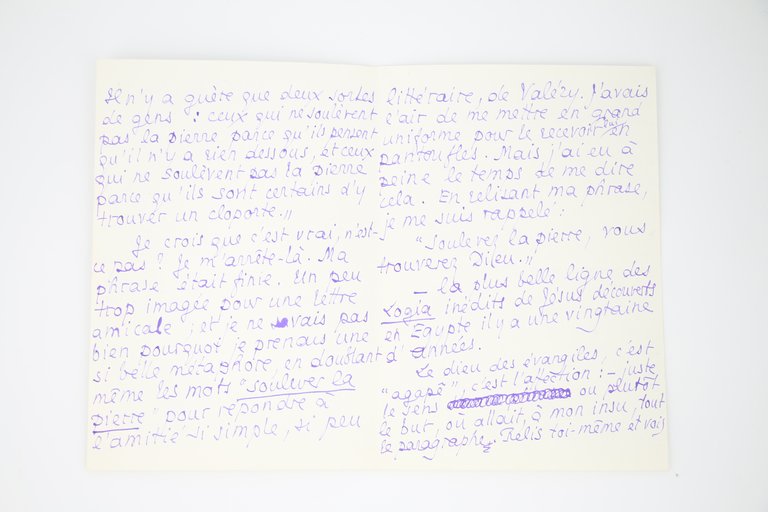 Il n'y a guère que deux sortes
de gens : ceux qui ne soulèvent
pas la pierre parce qu'ils pensent
qu'il n'y a rien dessous, et ceux
qui ne soulèvent pas la pierre
parce qu'ils sont certains d'y
trouver un cloporte."
Je crois que c'est vrai, n'est-
ce pas ? Je m'arrête-là. Ma
phrase était finie. Un peu
trop imagée pour une lettre
amicale ; et je ne vais pas
bien pourquoi je prenais une
si belle métaphore, en doublant
même les mots "soulever la
pierre" pour répondre à
l'amitié si simple, si peu
littéraire, de Valéry. J'avais
l'air de me mettre en grand
uniforme pour le recevoir lui en
pantoufles. Mais j'ai eu à
peine le temps de me dire
cela. En relisant ma phrase,
je me suis rappelé :
"Soulevez la pierre, vous
trouverez Dieu."
– la plus belle ligne des
Logia inédits de Jésus découverts
en Egypte il y a une vingtaine
d'années.
Le dieu des évangiles, c'est
"agapê", c'est l'affection : – juste
le sens ou plutôt
le but, où allait, à mon insu, tout
le paragraphe. Relis toi-même et vois